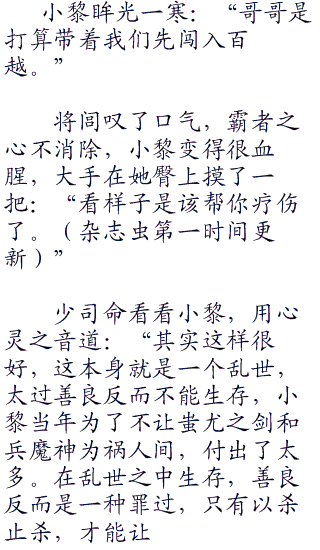 小黎眸光一寒：“哥哥是
打算带着我们先闯入百
越。”
将闾叹了口气，霸者之
心不消除，小黎变得很血
腥，大手在她臀上摸了一
把：“看样子是该帮你疗伤
了。（杂志虫第一时间更
新）”
少司命看看小黎，用心
灵之音道：“其实这样很
好，这本身就是一个乱世，
太过善良反而不能生存，小
黎当年为了不让蚩尤之剑和
兵魔神为祸人间，付出了太
多。在乱世之中生存，善良
反而是一种罪过，只有以杀
止杀，才能让